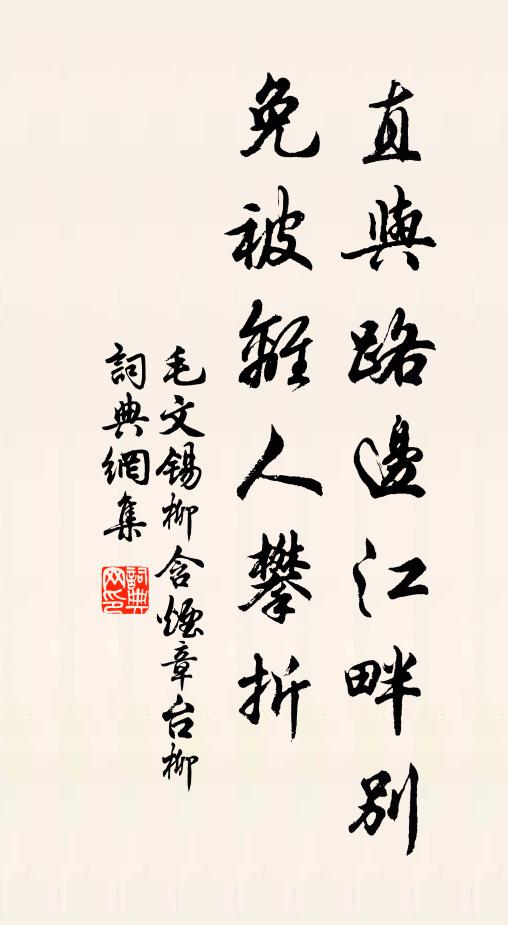 直與路邊江畔別
免被離人攀折
毛文錫柳含煙章台柳
詞典網集
詞典
网印